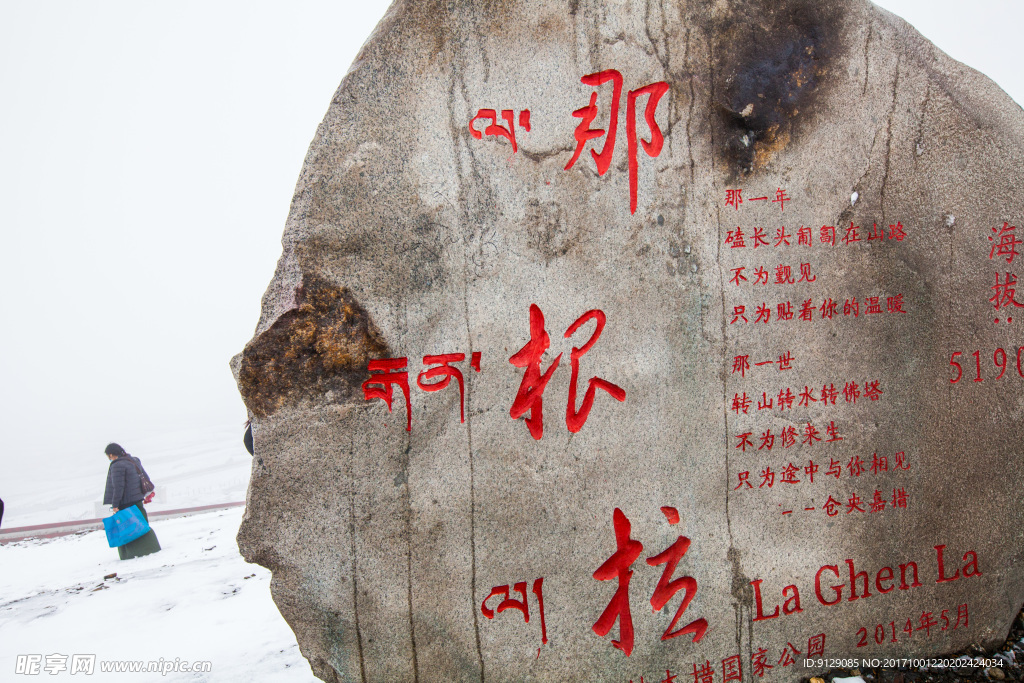 ལ་
那
根
ལ
拉
那一年
磕长头匍匐在山路
不为觐见
只为贴着你的温暖
那一世
转山转水转佛塔
不为修来生
只为途中与你相见
--仓央嘉措
海拔:
5190
La Ghen La
木措国家公园 2014年5月
昵享网 www.nipic.cn
ID:9129085 NO:20171001220202424034